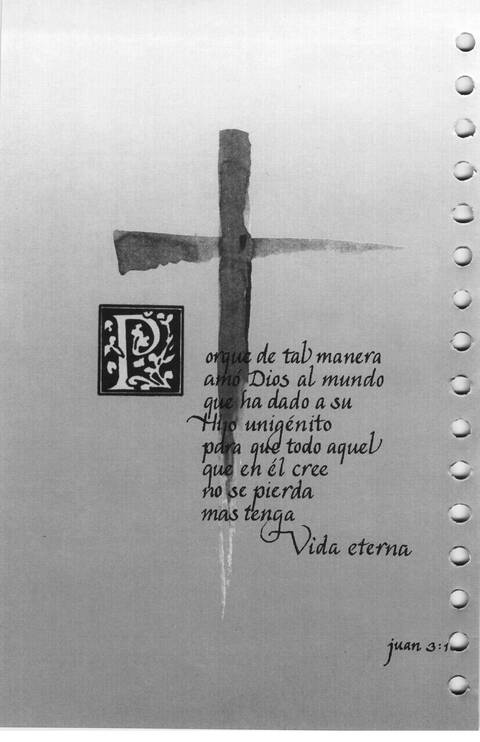 Porque de tal manera
amó Dios al mundo
que ha dado a su
Hijo unigénito
para que todo aquel
que en él cree
no se pierda
mas tenga
Vida eterna
juan 3:1